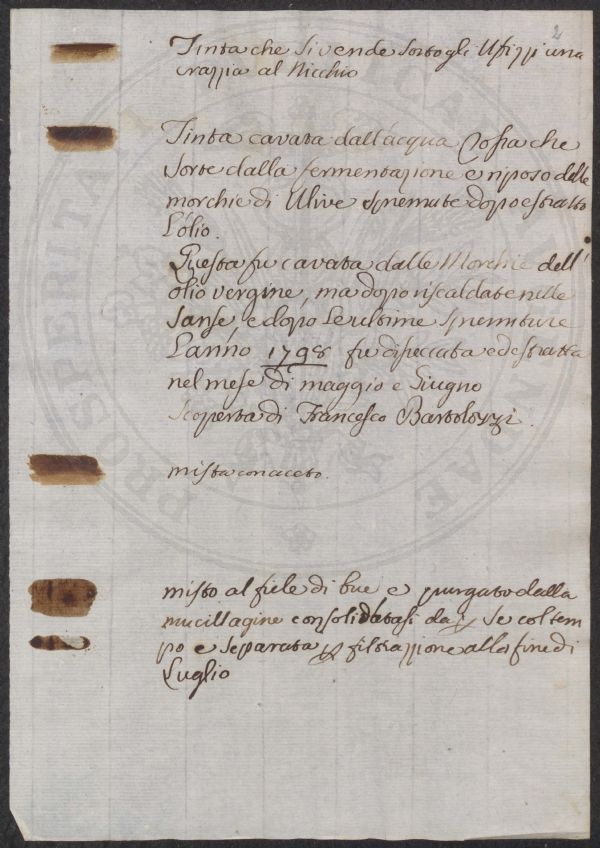 2
Tinta che si vende sotto gli Ufizzi una
crazzia al Nicchio
Tinta cavata dall'acqua rossa che
sorte dalla fermentazione e riposo delle
morchie di Ulive spremute dopo estratto
l'olio.
Questa fu cavata dalle Morchie dell'
olio vergine, ma dopo riscaldate nelle
sanse, e dopo le ultime spremiture
L'anno 1798 fu diseccata ed estratta
nel mese di maggio e Giugno
scoperta di Francesco Bartolozzi.
mista con aceto.
misto al fiele di bue e purgato dalla
mucillagine consolidatasi da p se col tem
po e separata p filtrazzione alla fine di
Luglio
PROSPERITATI